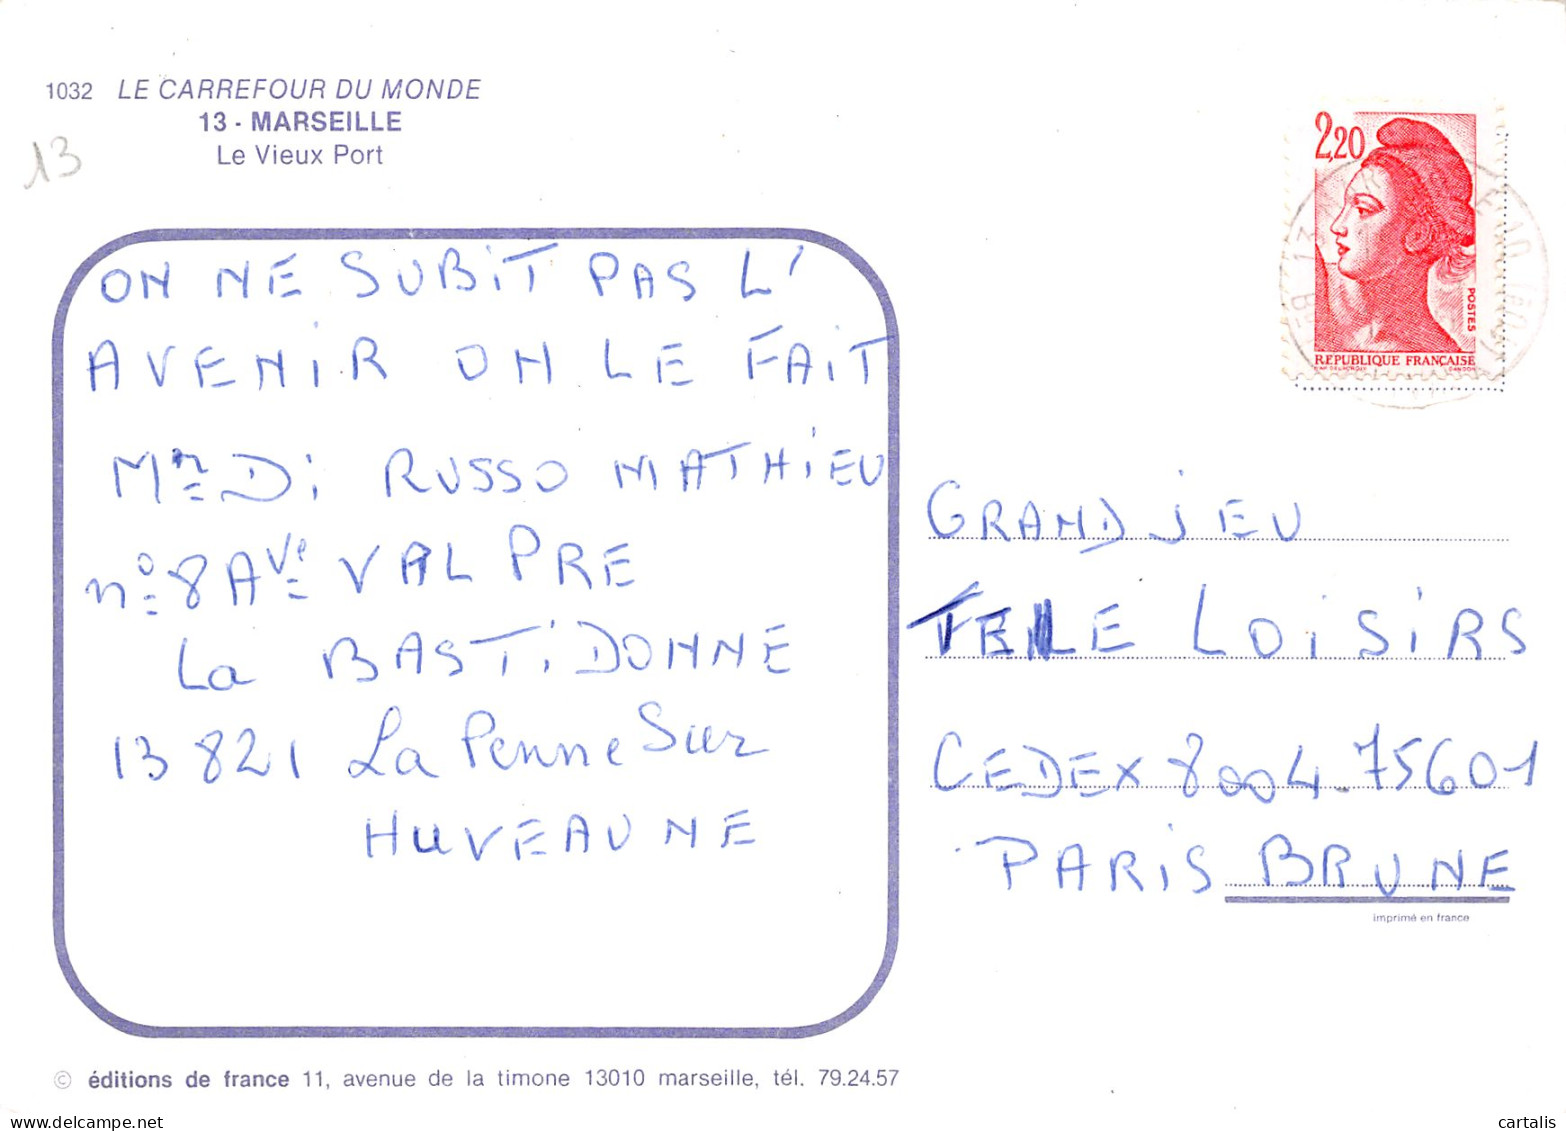 1032 LE CARREFOUR DU MONDE
13 - MARSEILLE
Le Vieux Port
13
ON NE SUBIT PAS L'
AVENIR ON LE FAIT
Mr Di RUSSO MATHIEU
n° 8 Ave VAL PRE
La BASTIDONNE
13 821 La Penne Sur
HUVEAUNE
2,20
POSTES
REPUBLIQUE FRANÇAISE
D'AP. DELACROIX GANDON
GRAND JEU
TELE LOISIRS
CEDEX 8004-75601
PARIS BRUNE
imprimé en france
© éditions de france 11, avenue de la timone 13010 marseille, tél. 79.24.57
cartalis